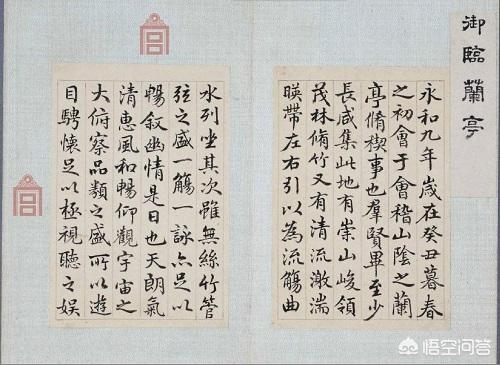 御臨蘭亭
永和九年歲在癸丑暮春
之初會于會稽山陰之蘭
亭脩稧事也羣賢畢至少
長咸集此地有崇山峻領
茂林脩竹又有清流激湍
暎帶左右引以為流觴曲
水列坐其次雖無絲竹管
弦之盛一觴一詠亦足以
暢叙幽情是日也天朗氣
清惠風和暢仰觀宇宙之
大俯察品類之盛所以遊
目騁懷足以極視聽之娛
悟空问答